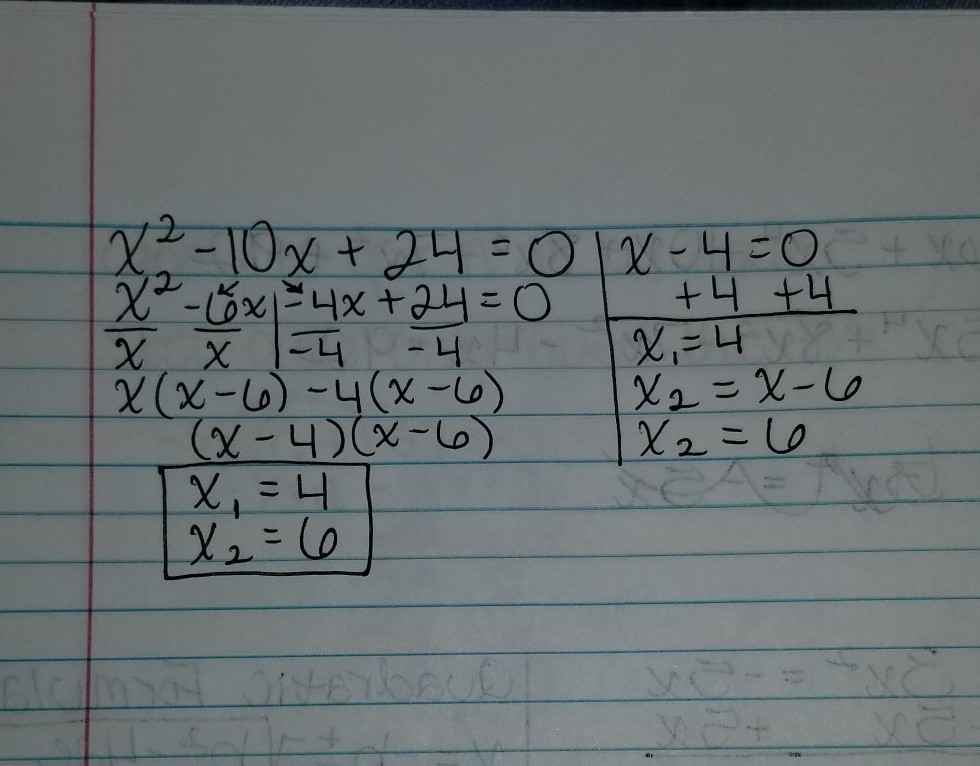 x² - 10x + 24 = 0
x² - 6x | - 4x + 24 = 0
x x | -4 -4
x(x-6) -4(x-6)
(x-4)(x-6)
x₁ = 4
x₂ = 6
x - 4 = 0
+4 +4
x₁ = 4
x₂ = x-6
x₂ = 6